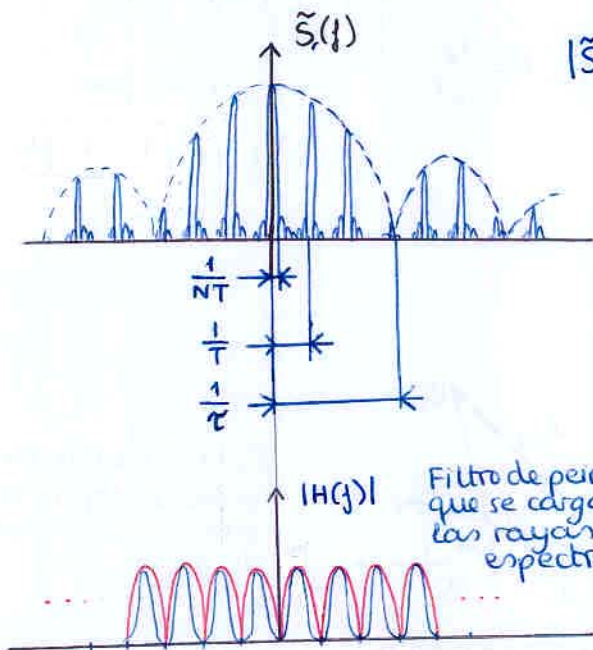 S̃₁(f)
|S̃
1/NT
1/T
1/τ
|H(f)|
Filtro de pei
que se carga
las rayas
espectr